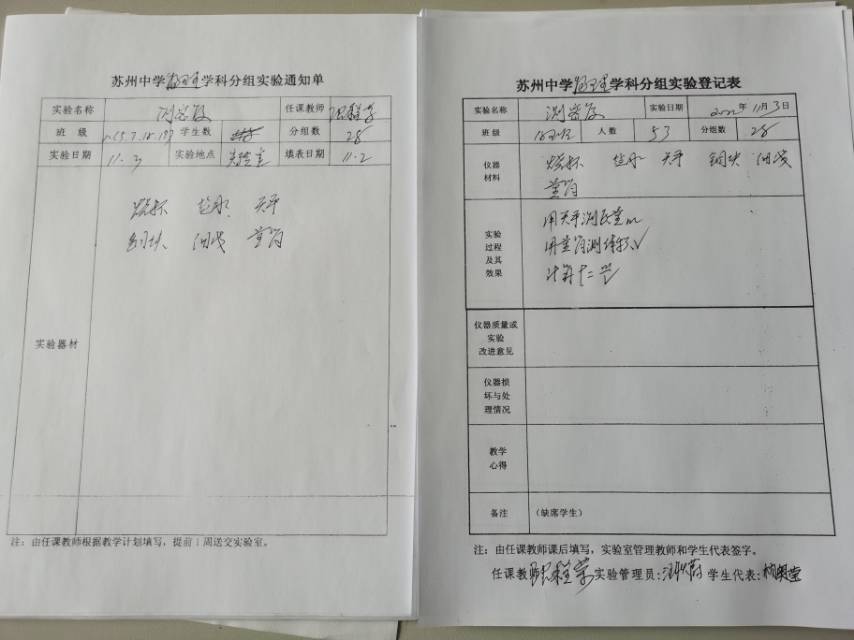 苏州中学物理学科分组实验通知单
实验名称 测密度 任课教师
班 级 学生数 分组数 28
实验日期 11.3 实验地点 实验室 填表日期 11.2
烧杯 盐水 天平
铜块 细线 量筒
实验器材
注：由任课教师根据教学计划填写，提前1周送交实验室。
苏州中学物理学科分组实验登记表
实验名称 测密度 实验日期 年11月3日
班级 人数 53 分组数 28
仪器
材料
烧杯 盐水 天平 铜块 细线
量筒
实验
过程
及其
效果
用天平测质量m
用量筒测体积V
计算
仪器质量或
实验
改进意见
仪器损
坏与处
理情况
教学
心得
备注 （缺席学生）
注：由任课教师课后填写，实验室管理教师和学生代表签字。
任课教师 实验管理员： 学生代表：